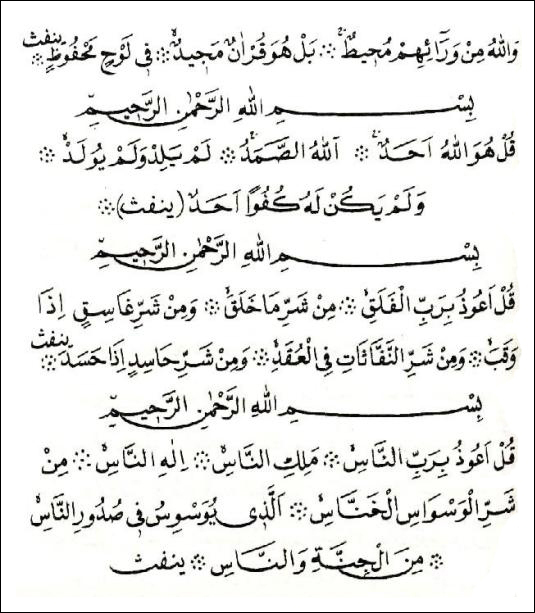 وَاللهُ مِنْ وَرَٓائِهِمْ مُح۪يطٌۚ ۞ بَلْ هُوَ قُرْاٰنٌ مَج۪يدٌۙ ۞ ف۪ي لَوْحٍ مَحْفُوظٍ ينفث
بِسْــــــمِ اللهِ الرَّحْمٰنِ الرَّح۪يمِ
قُلْ هُوَ اللهُ اَحَدٌۚ ۞ اَللهُ الصَّمَدُۚ ۞ لَمْ يَلِدْ وَلَمْ يُولَدْۙ ۞
وَلَمْ يَكُنْ لَهُ كُفُوًا اَحَدٌ (ينفث) ۞
بِسْــــــمِ اللهِ الرَّحْمٰنِ الرَّح۪يمِ
قُلْ اَعُوذُ بِرَبِّ الْفَلَقِۙ ۞ مِنْ شَرِّ مَا خَلَقَۙ ۞ وَمِنْ شَرِّ غَاسِقٍ اِذَا
وَقَبَۙ ۞ وَمِنْ شَرِّ النَّفَّاثَاتِ فِي الْعُقَدِۙ ۞ وَمِنْ شَرِّ حَاسِدٍ اِذَا حَسَدَ ينفث ۞
بِسْــــــمِ اللهِ الرَّحْمٰنِ الرَّح۪يمِ
قُلْ اَعُوذُ بِرَبِّ النَّاسِۙ ۞ مَلِكِ النَّاسِۙ ۞ اِلٰهِ النَّاسِۙ ۞ مِنْ
شَرِّ الْوَسْوَاسِ الْخَنَّاسِۙ ۞ اَلَّذ۪ي يُوَسْوِسُ ف۪ي صُدُورِ النَّاسِۙ
۞ مِنَ الْجِنَّةِ وَالنَّاسِ ۞ ينفث